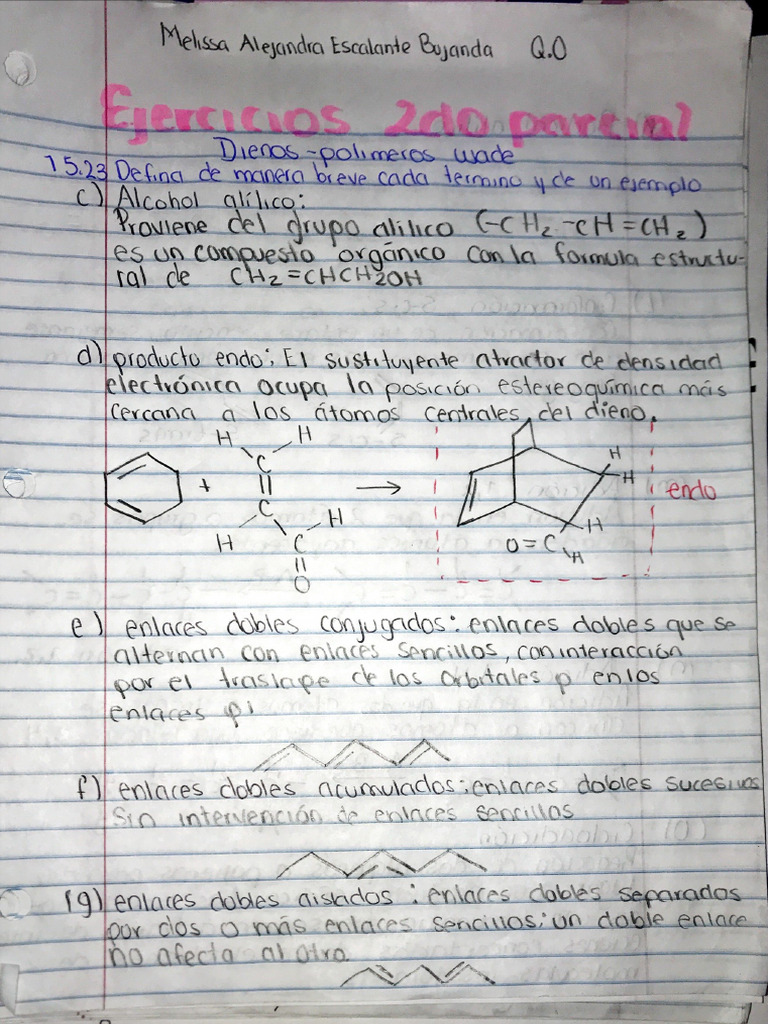 Melissa Alejandra Escalante Bujanda Q.O
Ejercicios 2do parcial
Dienos-polimeros wade
15.23 Defina de manera breve cada termino y de un ejemplo
c) Alcohol alílico:
Proviene del grupo alilico (-CH2-CH=CH2)
es un compuesto orgánico con la formula estructu-
ral de CH2=CHCH2OH
d) producto endo: El sustituyente atractor de densidad
electrónica ocupa la posición estereoquímica más
cercana a los átomos centrales del dieno.
H H
C
+ C H
H C
O
H
H
H
O=C H
endo
e) enlaces dobles conjugados: enlaces dobles que se
alternan con enlaces sencillos, con interacción
por el traslape de los orbitales p en los
enlaces pi
f) enlaces dobles acumulados: enlaces dobles sucesivos
Sin intervención de enlaces sencillos
(g) enlaces dobles aislados: enlaces dobles separados
por dos o más enlaces sencillos; un doble enlace
no afecta al otro.